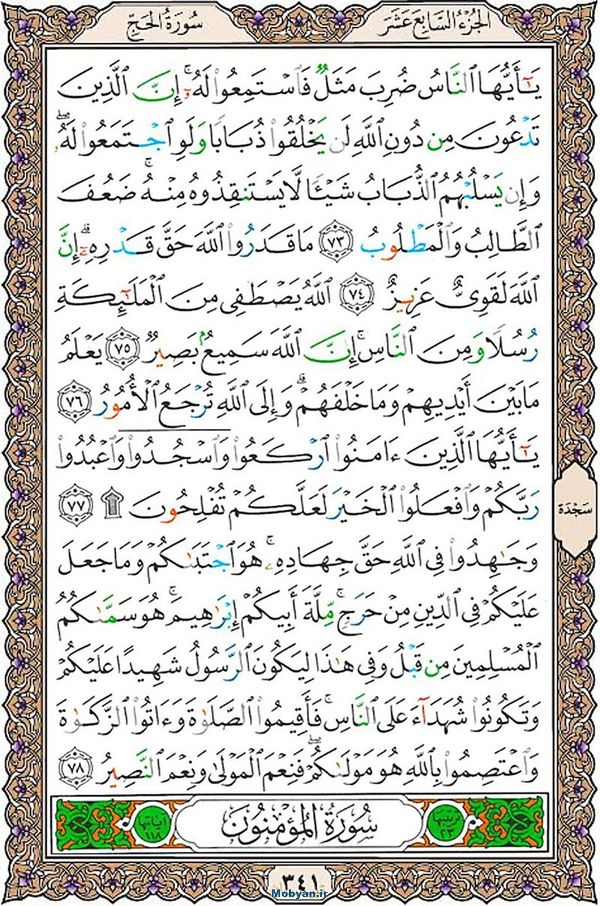 الجزء السابع عشر
سورة الحج
يَٰٓأَيُّهَا ٱلنَّاسُ ضُرِبَ مَثَلٌ فَٱسْتَمِعُوا۟ لَهُۥٓ ۚ إِنَّ ٱلَّذِينَ
تَدْعُونَ مِن دُونِ ٱللَّهِ لَن يَخْلُقُوا۟ ذُبَابًا وَلَوِ ٱجْتَمَعُوا۟ لَهُۥ ۖ
وَإِن يَسْلُبْهُمُ ٱلذُّبَابُ شَيْـًٔا لَّا يَسْتَنقِذُوهُ مِنْهُ ۚ ضَعُفَ
ٱلطَّالِبُ وَٱلْمَطْلُوبُ ٧٣ مَا قَدَرُوا۟ ٱللَّهَ حَقَّ قَدْرِهِۦٓ ۗ إِنَّ
ٱللَّهَ لَقَوِىٌّ عَزِيزٌ ٧٤ ٱللَّهُ يَصْطَفِى مِنَ ٱلْمَلَٰٓئِكَةِ
رُسُلًا وَمِنَ ٱلنَّاسِ ۚ إِنَّ ٱللَّهَ سَمِيعٌۢ بَصِيرٌ ٧٥ يَعْلَمُ
مَا بَيْنَ أَيْدِيهِمْ وَمَا خَلْفَهُمْ ۗ وَإِلَى ٱللَّهِ تُرْجَعُ ٱلْأُمُورُ ٧٦
يَٰٓأَيُّهَا ٱلَّذِينَ ءَامَنُوا۟ ٱرْكَعُوا۟ وَٱسْجُدُوا۟ وَٱعْبُدُوا۟
رَبَّكُمْ وَٱفْعَلُوا۟ ٱلْخَيْرَ لَعَلَّكُمْ تُفْلِحُونَ ۩ ٧٧
سجدة
وَجَٰهِدُوا۟ فِى ٱللَّهِ حَقَّ جِهَادِهِۦ ۚ هُوَ ٱجْتَبَىٰكُمْ وَمَا جَعَلَ
عَلَيْكُمْ فِى ٱلدِّينِ مِنْ حَرَجٍ ۚ مِّلَّةَ أَبِيكُمْ إِبْرَٰهِيمَ ۚ هُوَ سَمَّىٰكُمُ
ٱلْمُسْلِمِينَ مِن قَبْلُ وَفِى هَٰذَا لِيَكُونَ ٱلرَّسُولُ شَهِيدًا عَلَيْكُمْ
وَتَكُونُوا۟ شُهَدَآءَ عَلَى ٱلنَّاسِ ۚ فَأَقِيمُوا۟ ٱلصَّلَوٰةَ وَءَاتُوا۟ ٱلزَّكَوٰةَ
وَٱعْتَصِمُوا۟ بِٱللَّهِ هُوَ مَوْلَىٰكُمْ ۖ فَنِعْمَ ٱلْمَوْلَىٰ وَنِعْمَ ٱلنَّصِيرُ ٧٨
ترتيبها ٢٣
سورة المؤمنون
آياتها ١١٨
٣٤١
Mobyan.ir